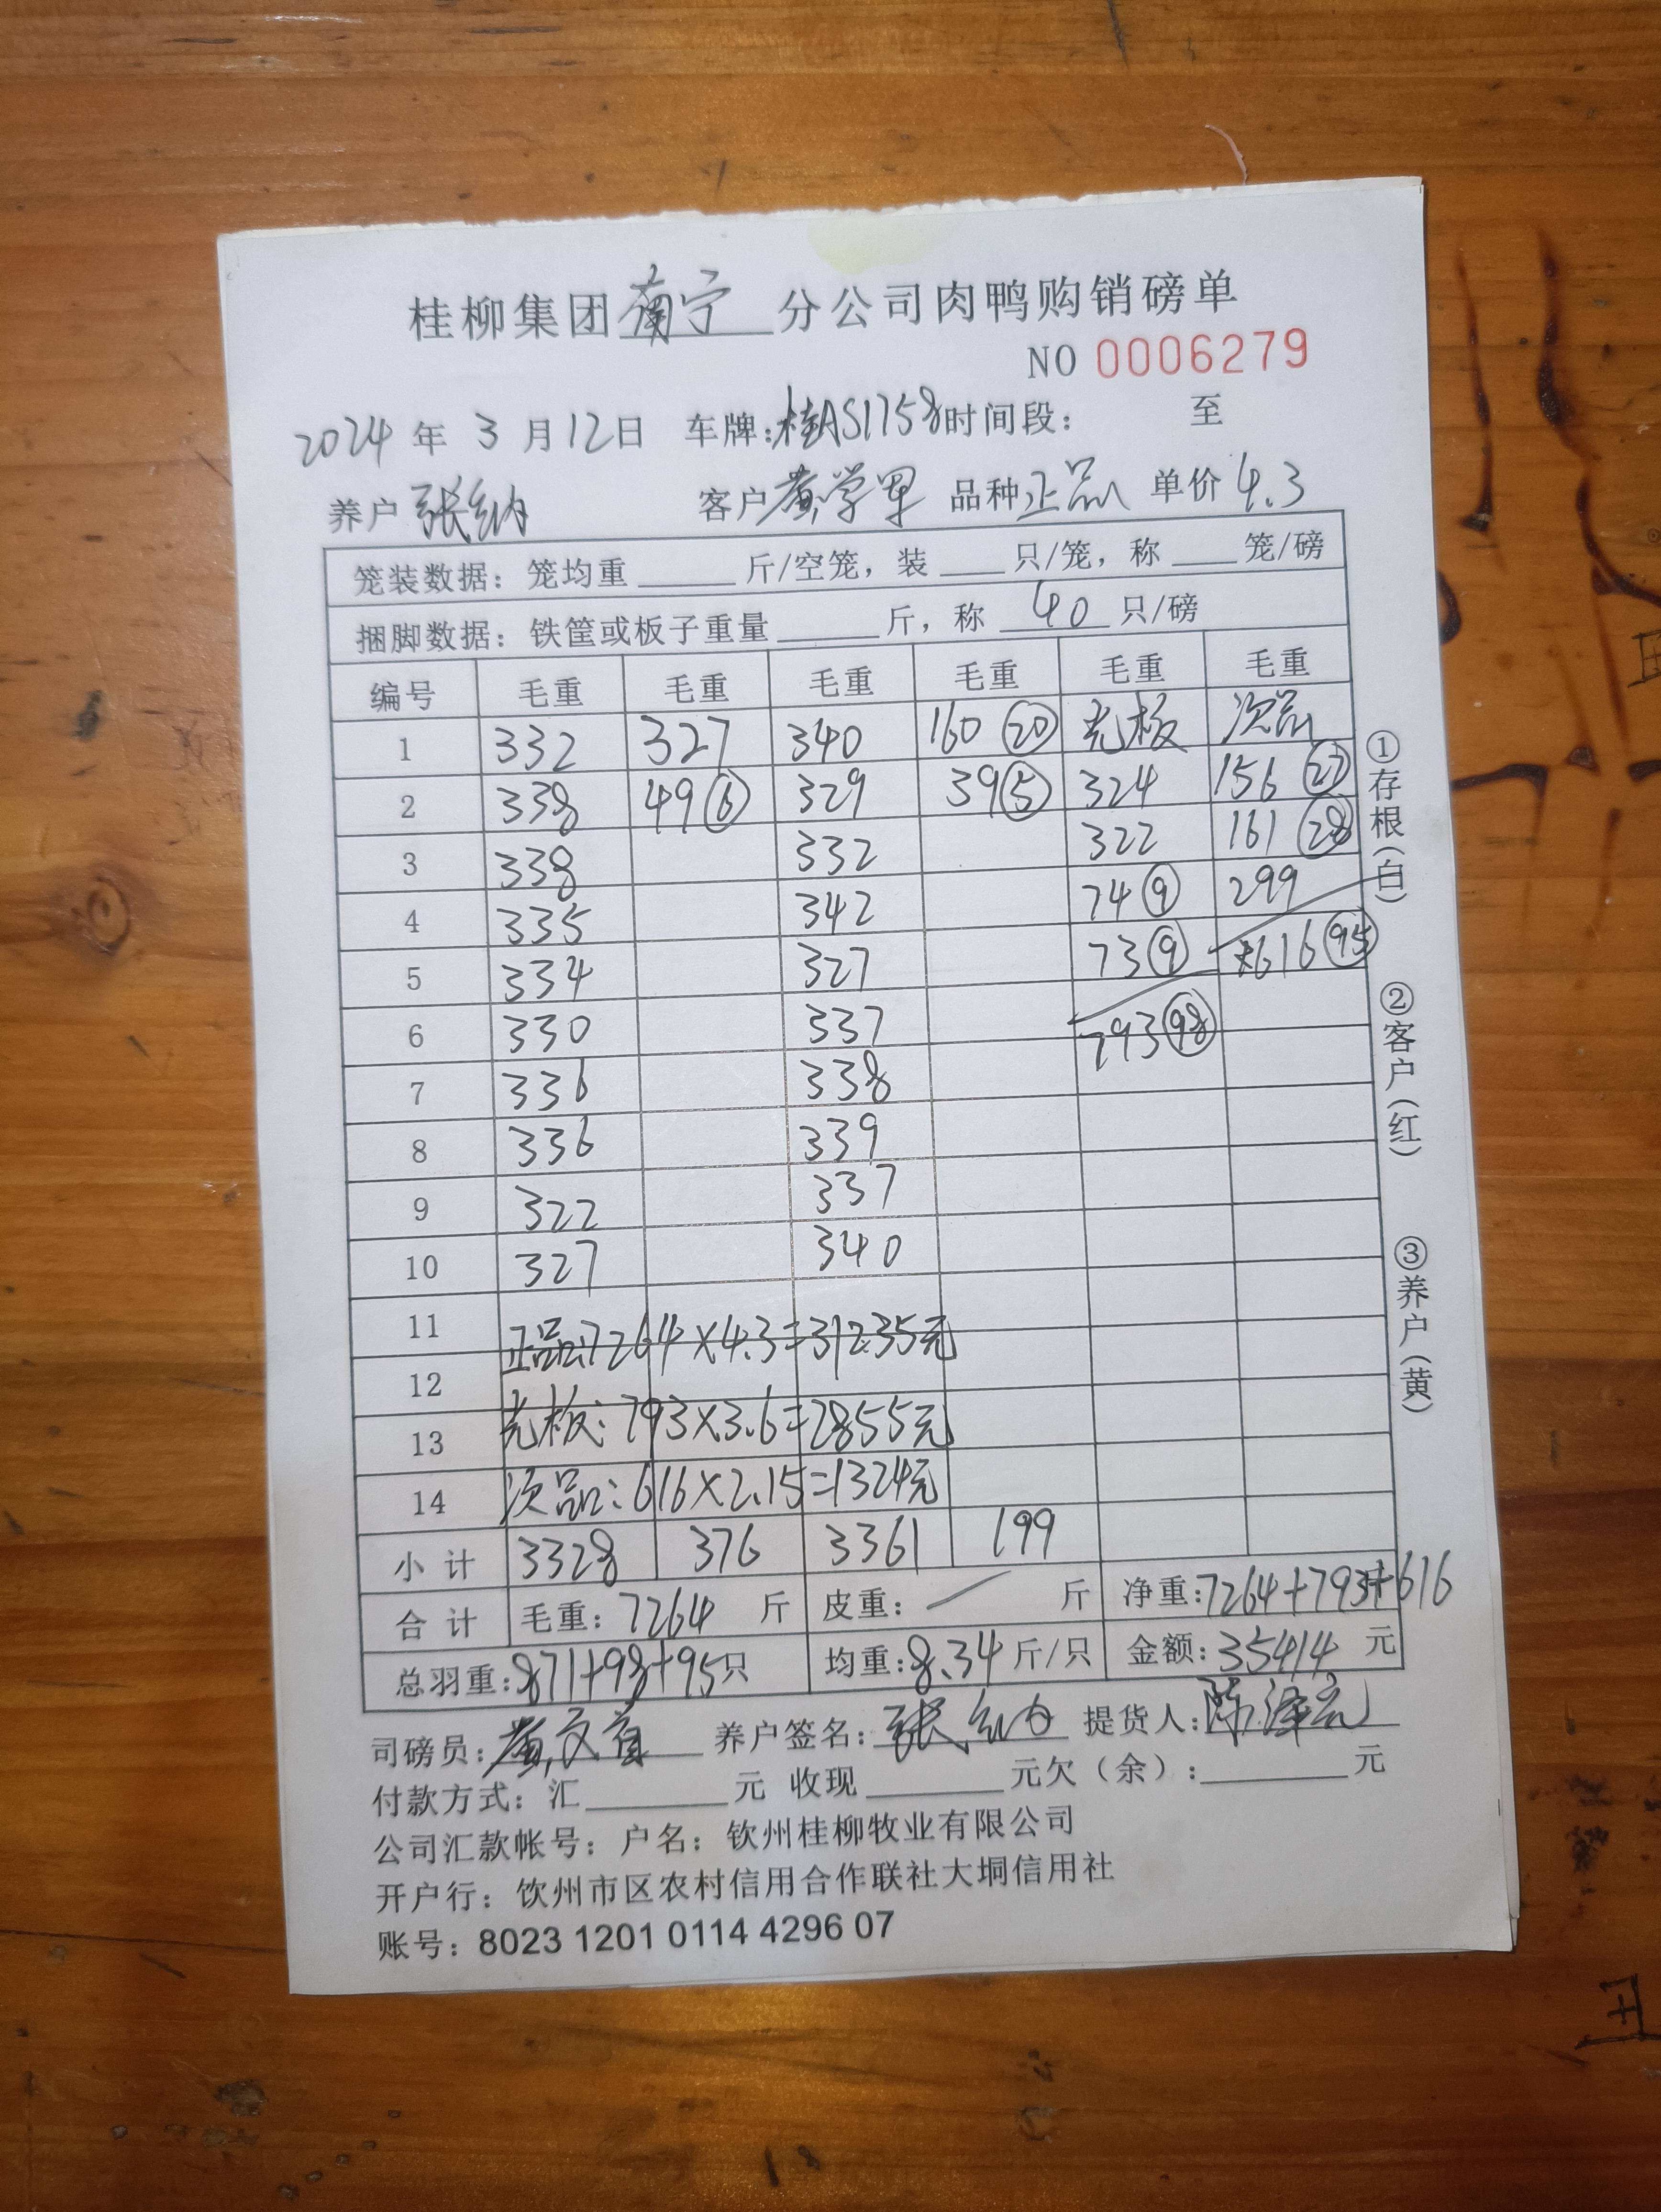 桂柳集团南宁分公司肉鸭购销磅单
NO 0006279
2024年3月12日 车牌:桂AS1758时间段: 至
养户张纳 客户黄学军 品种正品 单价4.3
笼装数据：笼均重 斤/空笼，装 只/笼，称 笼/磅
捆脚数据：铁筐或板子重量 斤，称 40 只/磅
编号 毛重 毛重 毛重 毛重 毛重 毛重
1 332 327 340 160 ⑳ 光板 次品
2 338 49 ⑥ 329 39 ⑤ 324 156 ㉗
3 338 332 322 161 ㉘
4 335 342 74 ⑨ 299
5 334 327 73 ⑨ 616 (95)
6 330 337 793 (98)
7 336 338
8 336 339
9 322 337
10 327 340
11 正品:7264×4.3=31235元
12
13 光板:793×3.6=2855元
14 次品:616×2.15=1324元
小计 3328 376 3361 199
合计 毛重:7264 斤 皮重: / 斤 净重:7264+793+616
总羽重:871+98+95只 均重:8.34斤/只 金额:35414 元
司磅员:黄 养户签名:张纳 提货人:陈泽
付款方式：汇 元 收现 元欠（余）： 元
公司汇款帐号：户名：钦州桂柳牧业有限公司
开户行：钦州市区农村信用合作联社大垌信用社
账号：8023 1201 0114 4296 07
①存根(白)
②客户(红)
③养户(黄)